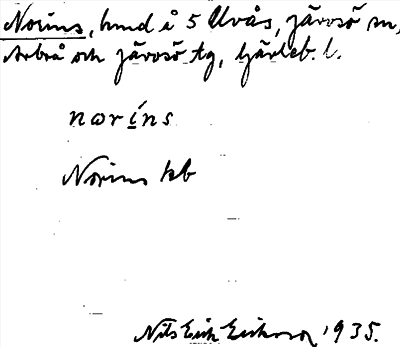 Norins, hmd å 5 Ulvås, Järvsö sn,
Arbrå och Järvsö tg, Gävleb. l.
norins
Norins kb
Nils Erik Eriksson 1935.